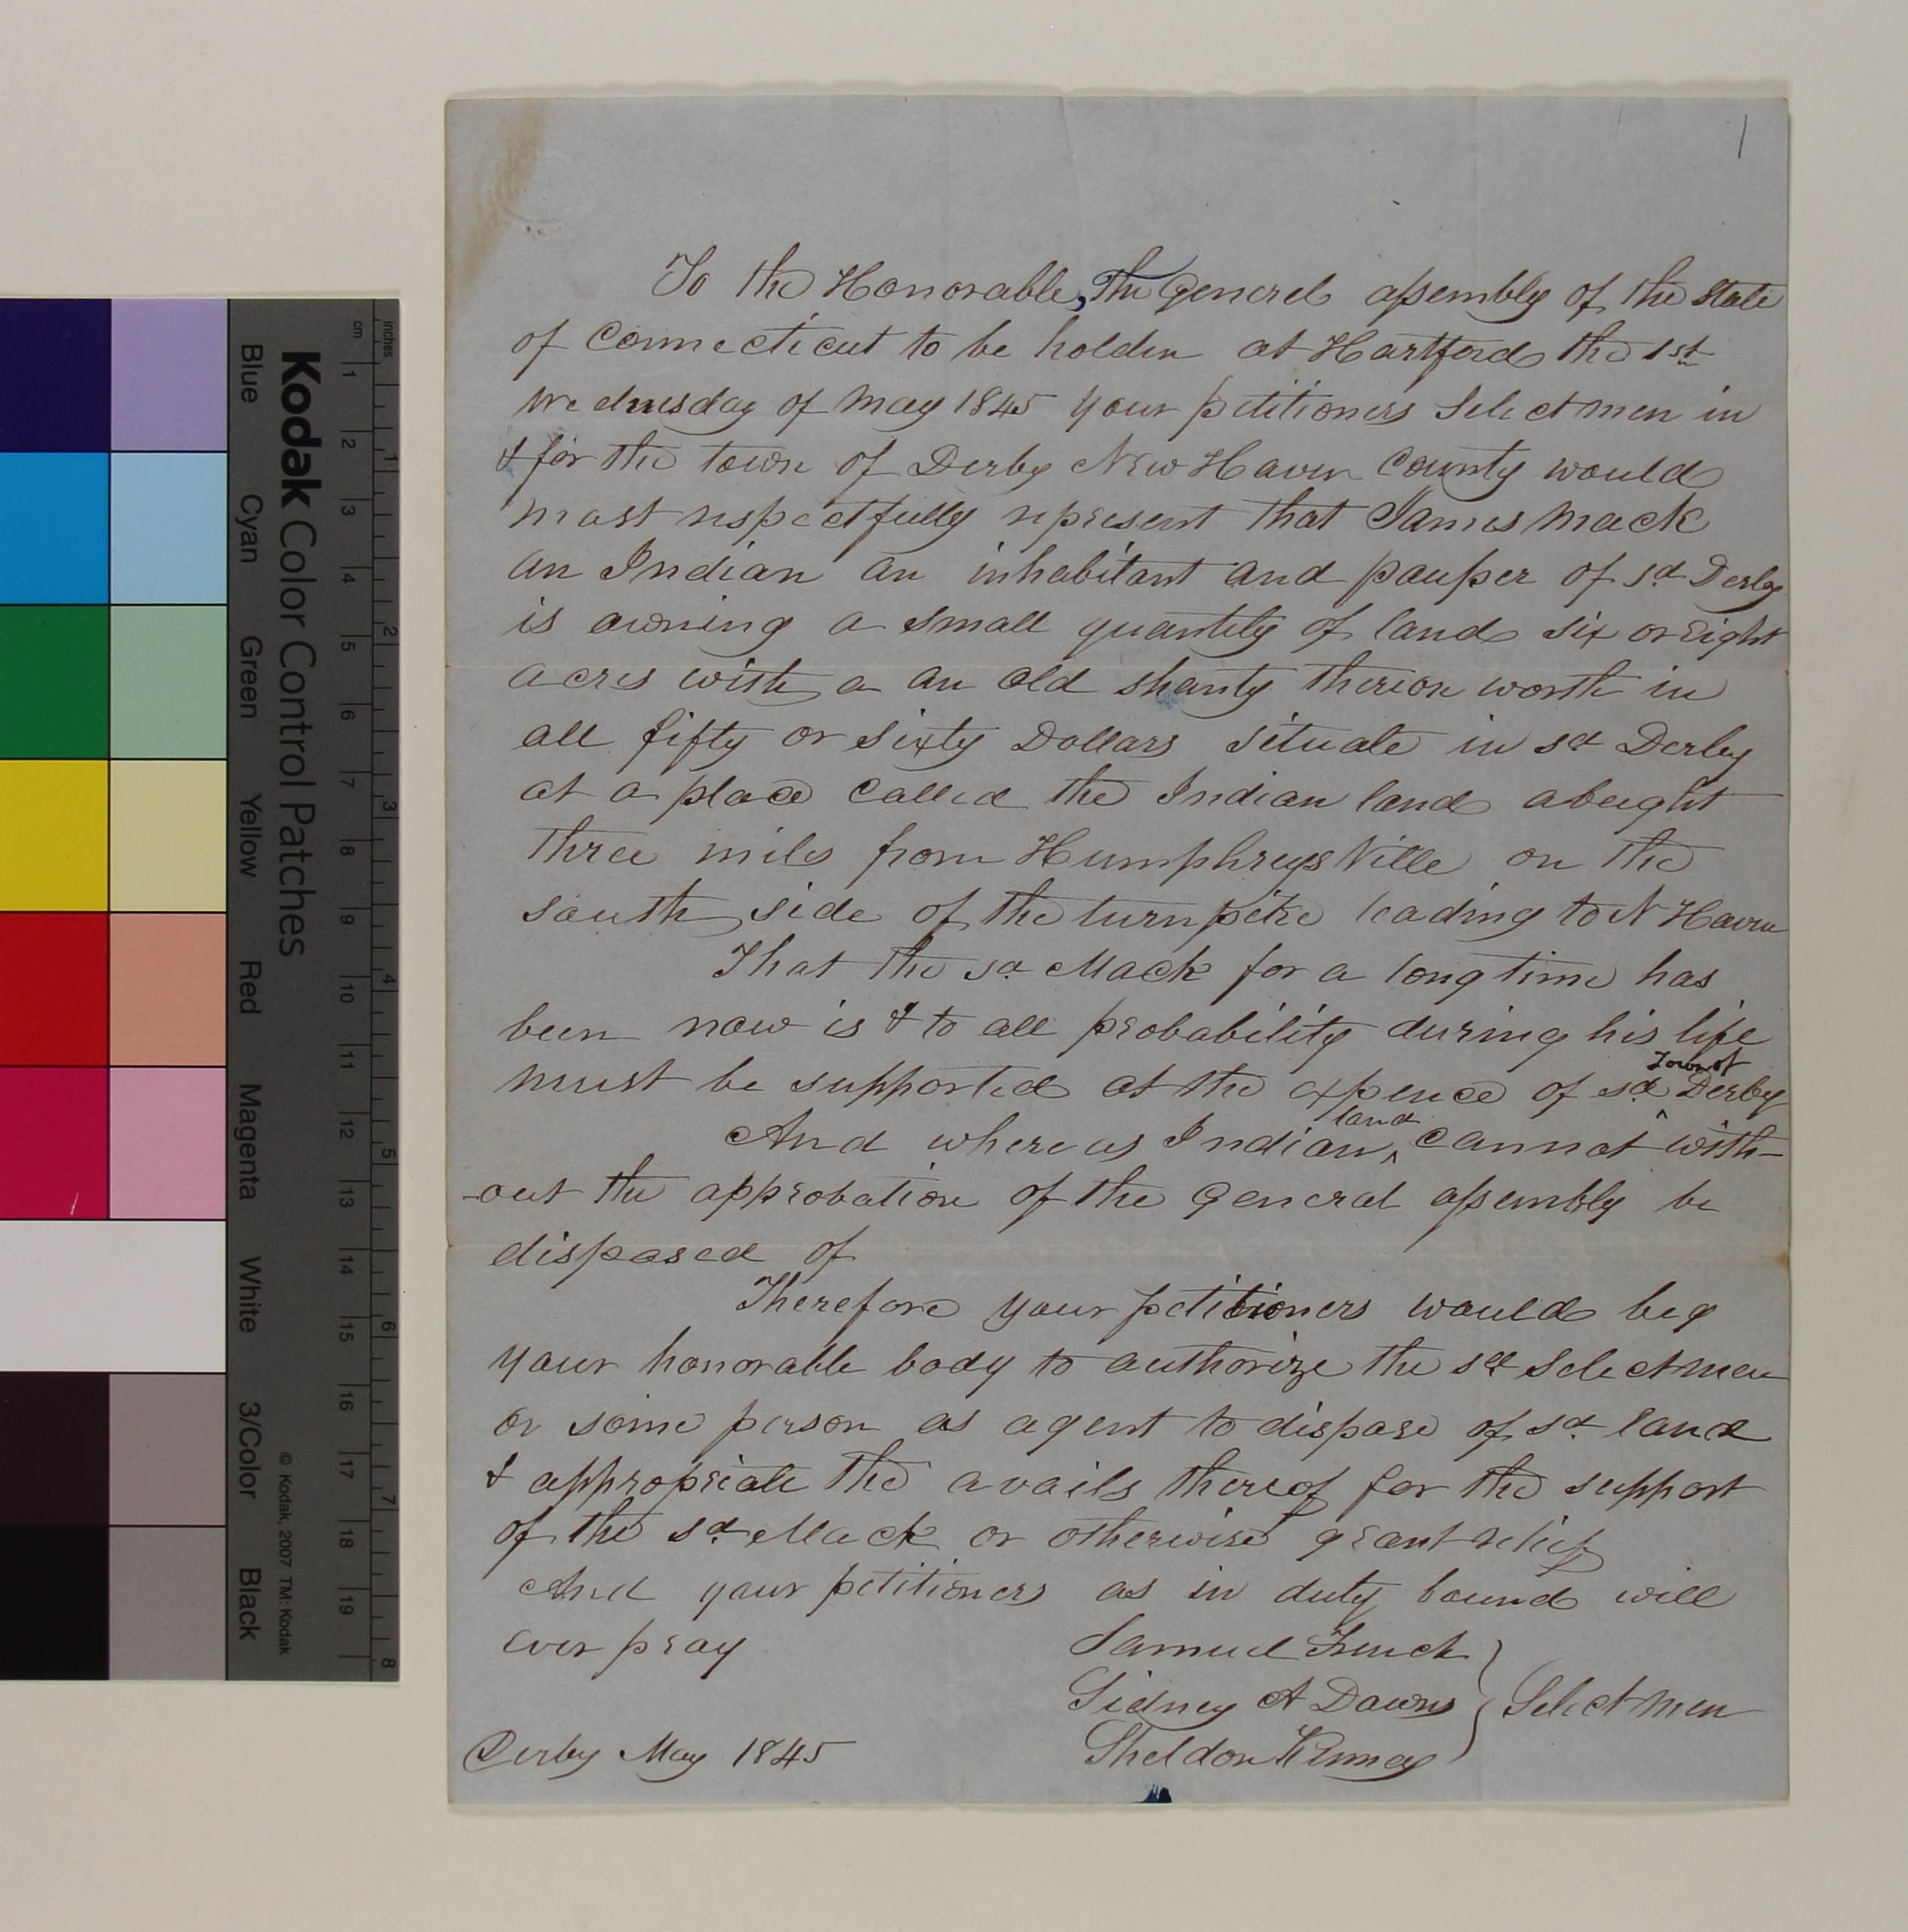 1
To the Honorable, The General assembly of the State
of Connecticut to be holden at Hartford the 1st
Wednesday of May 1845 your petitioners Select men in
& for the town of Derby New Haven County would
most respectfully represent that James Mack
an Indian an inhabitant and pauper of sd Derby
is owning a small quantity of land six or eight
acres with a an old shanty thereon worth in
all fifty or sixty Dollars situate in sd Derby
at a place called the Indian land abught
three miles from Humphreys Ville on the
south side of the turnpike leading to N Haven
That the sd Mack for a long time has
been now is & to all probability during his life
Town of
must be supported at the expence of sd ^ Derby
land
And whereas Indian ^ cannot with-
-out the approbation of the General assembly be
disposed of
Therefore your petitioners would beg
your honorable body to authorize the sd Select men
or some person as agent to dispose of sd land
& appropriate the avails thereof for the support
of the sd Mack or otherwise grant relief
And your petitioners as in duty bound will
ever pray
Samuel French
Sidney A Downs } Select men
Sheldon Kinney
Derby May 1845
inches
cm
1 2 3 4 5 6 7 8 9 10 11 12 13 14 15 16 17 18 19
1 2 3 4 5 6 7 8
Kodak Color Control Patches
© Kodak, 2007 TM: Kodak
Blue Cyan Green Yellow Red Magenta White 3/Color Black